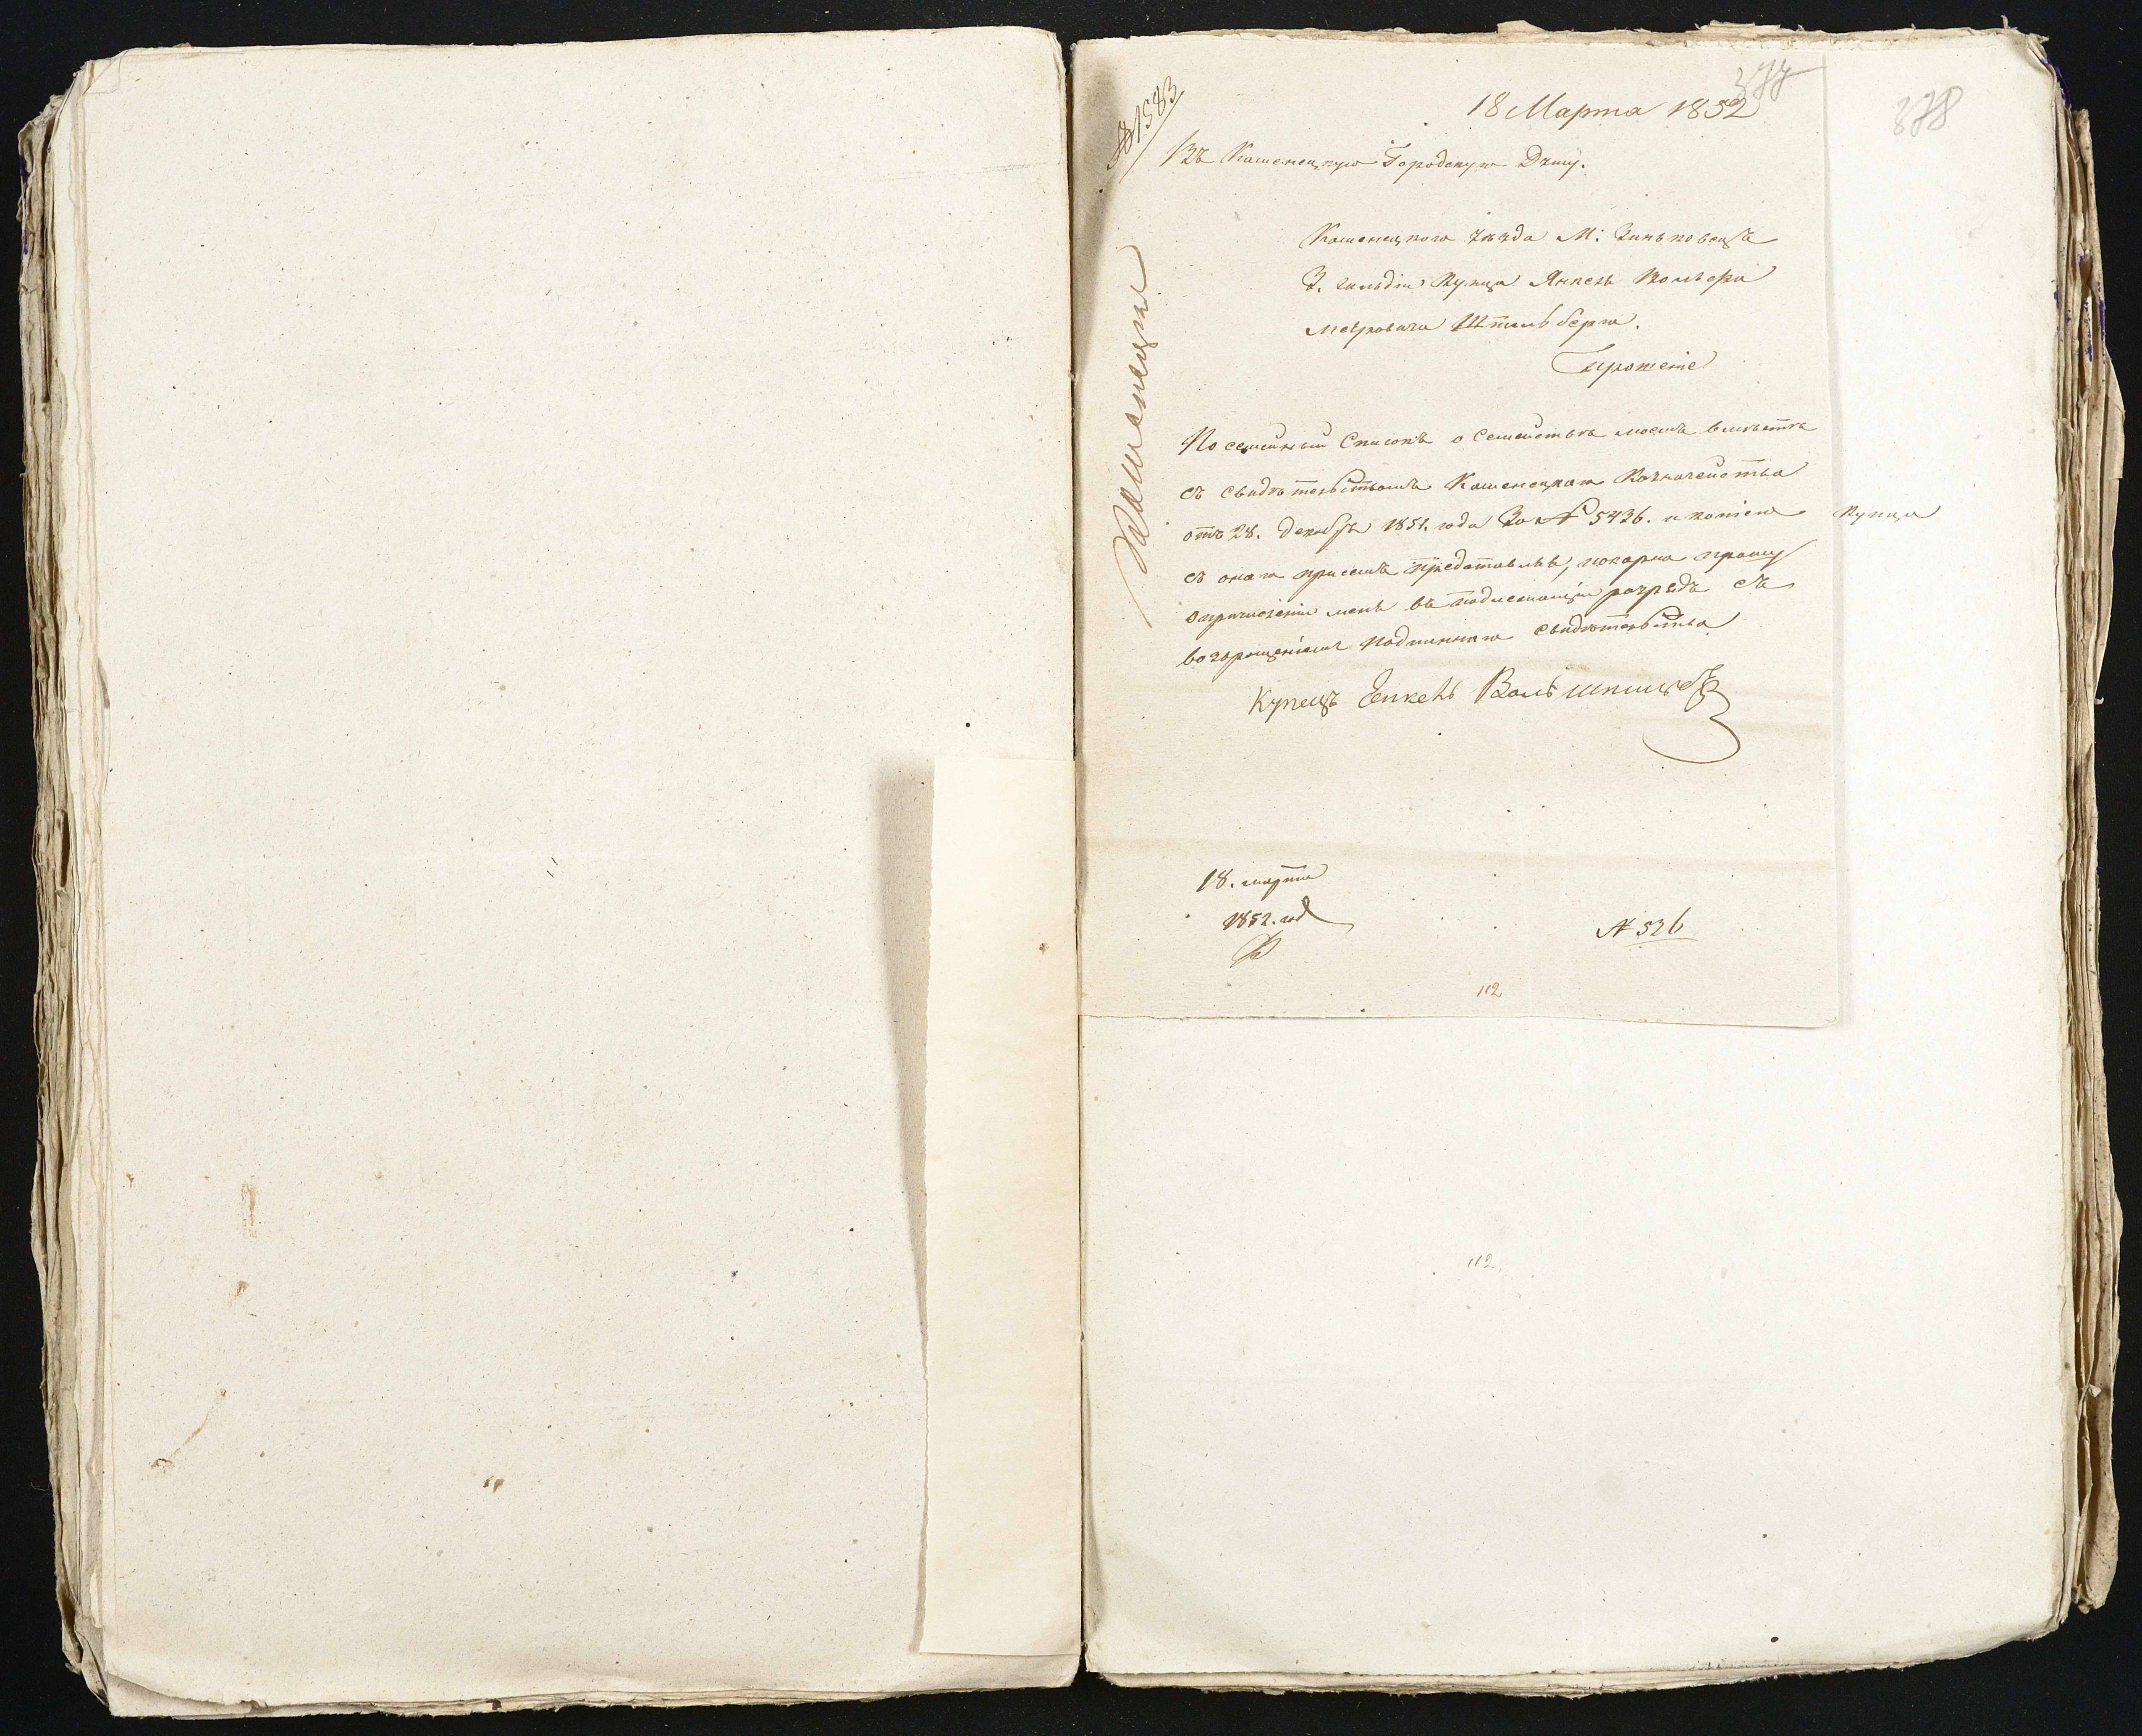 377
378
№ 1583
18 Марта 1852
Въ Каменецкую Городскую Думу.
Каменецкого уѣзда М: Зиньковецъ
3. гильдіи Купца Янкель Вольфа
Мееровича Шпильберга.
Прошеніе
Каменецкая
Посемейный Списокъ о Семействѣ моемъ вмѣстѣ
съ свидѣтельствомъ Каменецкаго Казначейства
отъ 28. декабря 1851. года За № 5436. и копіею
съ онаго присемъ представляя, покорно прошу
опричисленіи меня въ подлежащій разрядъ съ
возвращеніемъ подлиннаго свидѣтельства
Купецъ Янкель Воль
Купца
18. марта
1852. год
№ 526
112
112